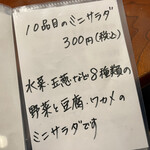 10品目のミニサラダ
300円(税込)
水菜・玉葱など8種類の
野菜と豆腐・ワカメの
ミニサラダです